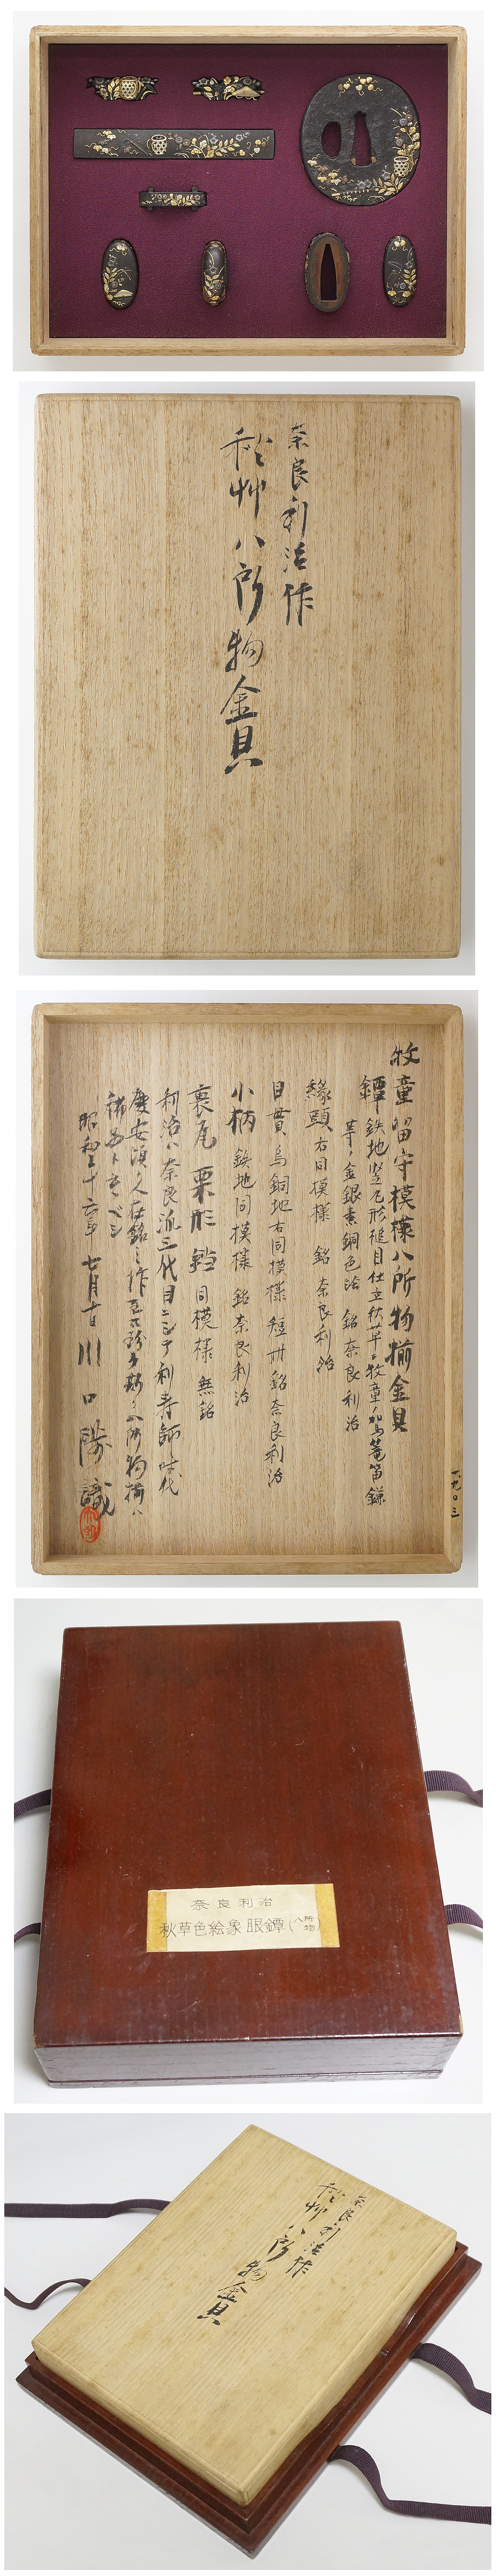 奈良利治作
秋艸八所物金具
牧童留守模様八所物揃金具
鐔 鉄地竪丸形槌目仕立秋草ニ牧童ノ加鳥篭笛鎌
等ヲ金銀素銅色絵 銘奈良利治
縁頭 右同模様 銘 奈良利治
目貫 烏銅地右同模様 短冊銘奈良利治
小柄 鉄地同模様 銘奈良利治
裏瓦 栗形 鐺 同模様 無銘
利治ハ奈良派三代目ニシテ利寿師ニ時代
慶安頃ノ人在銘之作
八所物揃ハ
稀品ト云ベシ
昭和三十六年 七月十日 川口陟識
一九〇三
奈良利治
秋草色絵象眼鐔(八所物)
奈良利治作
秋艸八所物金具